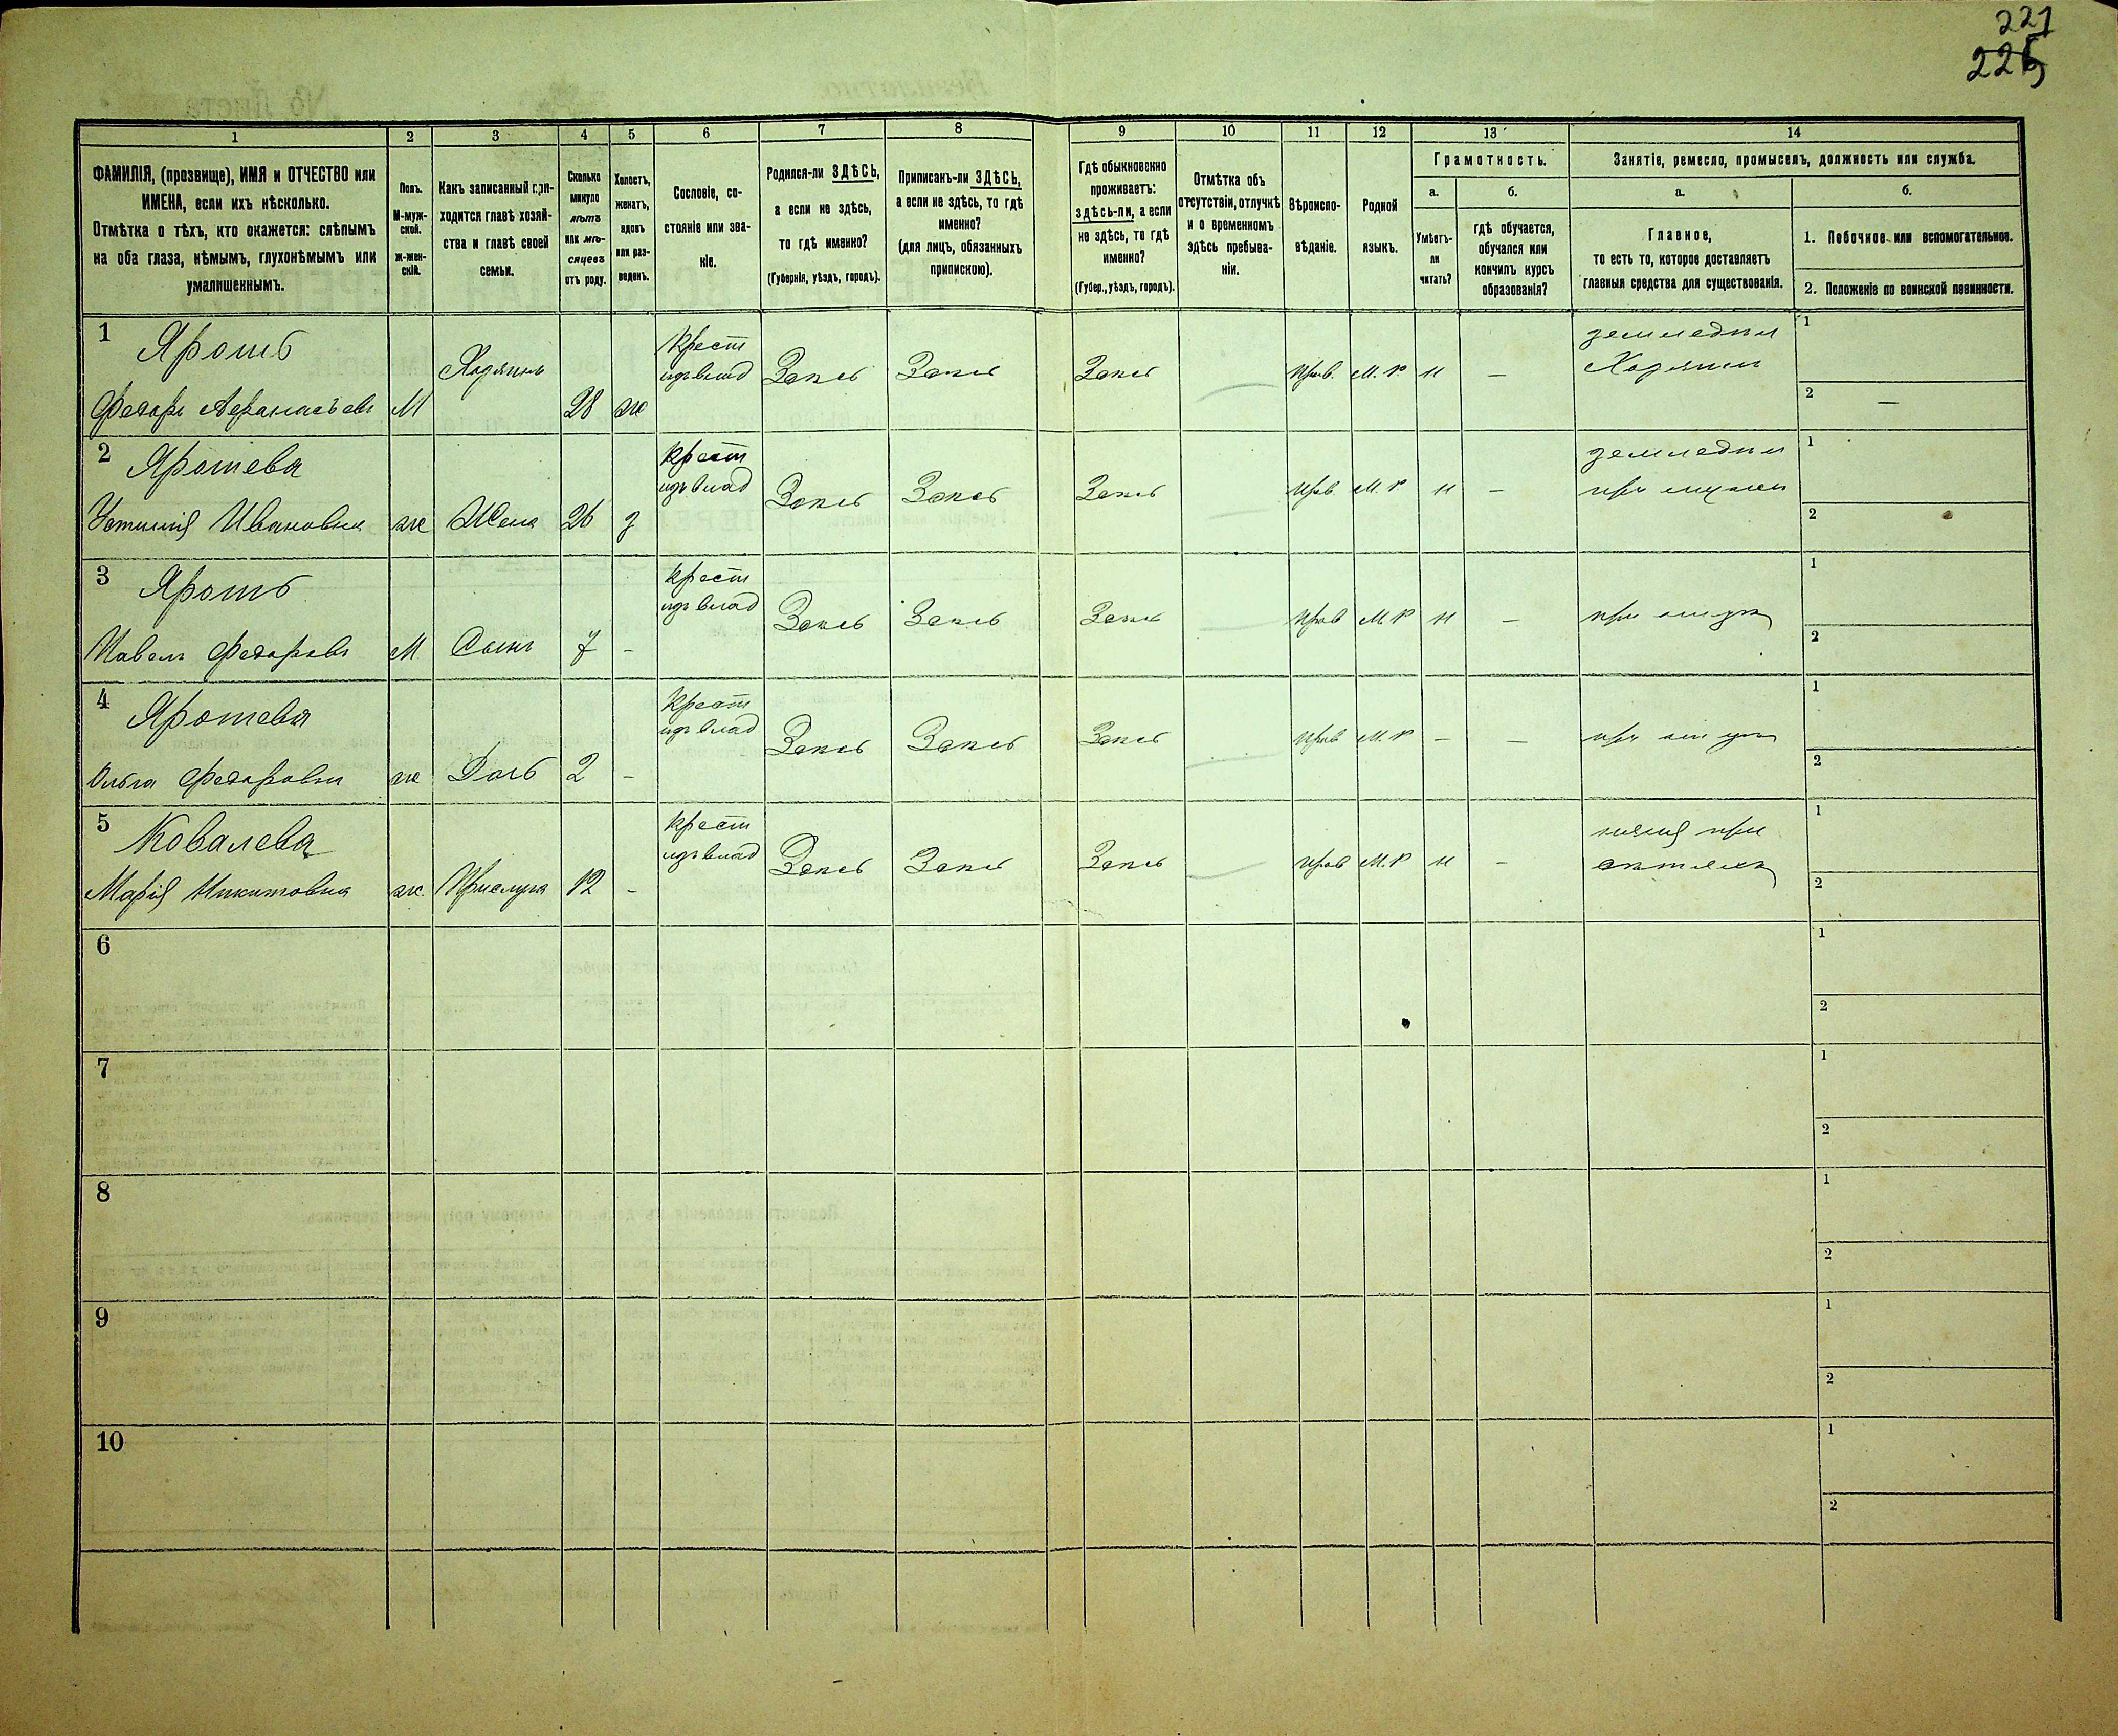 221
225
1
2
3
4
5
6
7
8
9
10
11
12
13
14
ФАМИЛІЯ, (прозвище), ИМЯ и ОТЧЕСТВО или
ИМЕНА, если ихъ нѣсколько.
Отмѣтка о тѣхъ, кто окажется: слѣпымъ
на оба глаза, нѣмымъ, глухонѣмымъ или
умалишеннымъ.
Полъ.
М-муж-
ской.
Ж-жен-
скій.
Какъ записанный при-
ходится главѣ хозяй-
ства и главѣ своей
семьи.
Сколько
минуло
лѣтъ
или мѣ-
сяцевъ
отъ роду.
Холостъ,
женатъ,
вдовъ
или раз-
веденъ.
Сословіе, со-
стояніе или зва-
ніе.
Родился-ли ЗДѢСЬ,
а если не здѣсь,
то гдѣ именно?
(Губернія, уѣздъ, городъ).
Приписанъ-ли ЗДѢСЬ,
а если не здѣсь, то гдѣ
именно?
(для лицъ, обязанныхъ
припискою).
Гдѣ обыкновенно
проживаетъ:
здѣсь-ли, а если
не здѣсь, то гдѣ
именно?
(Губер., уѣздъ, городъ).
Отмѣтка объ
отсутствіи, отлучкѣ
и о временномъ
здѣсь пребыва-
ніи.
Вѣроиспо-
вѣданіе.
Родной
языкъ.
Грамотность.
а.
Умѣетъ-
ли
читать?
б.
гдѣ обучается,
обучался или
кончилъ курсъ
образованія?
Занятіе, ремесло, промыселъ, должность или служба.
а.
Главное,
то есть то, которое доставляетъ
главныя средства для существованія.
б.
1. Побочное или вспомогательное.
2. Положеніе по воинской повинности.
1
Ярошъ
Федоръ Афанасьевъ
М
Хозяинъ
28
ж
Крест
изъ влад
Здѣсь
Здѣсь
Здѣсь
прав.
М. Р.
н
—
земледѣл
Хозяинъ
1
2
—
2
Ярошева
Устинія Ивановна
ж
Жена
26
з
Крест
изъ влад
Здѣсь
Здѣсь
Здѣсь
прав
М. Р
н
—
земледѣл
при мужѣ
1
2
3
Ярошъ
Павелъ Федоровъ
М
Сынъ
7
-
Крест
изъ влад
Здѣсь
Здѣсь
Здѣсь
прав
М. Р
н
—
при отцѣ
1
2
4
Ярошева
Ольга Федоровна
ж
Дочь
2
-
Крест
изъ влад
Здѣсь
Здѣсь
Здѣсь
прав
М. Р
—
—
при отцѣ
1
2
5
Ковалева
Марія Никитовна
ж.
Прислуга
12
-
Крест
изъ влад
Здѣсь
Здѣсь
Здѣсь
прав
М. Р
н
-
няня при
дѣтяхъ
1
2
6
1
2
7
1
2
8
1
2
9
1
2
10
1
2